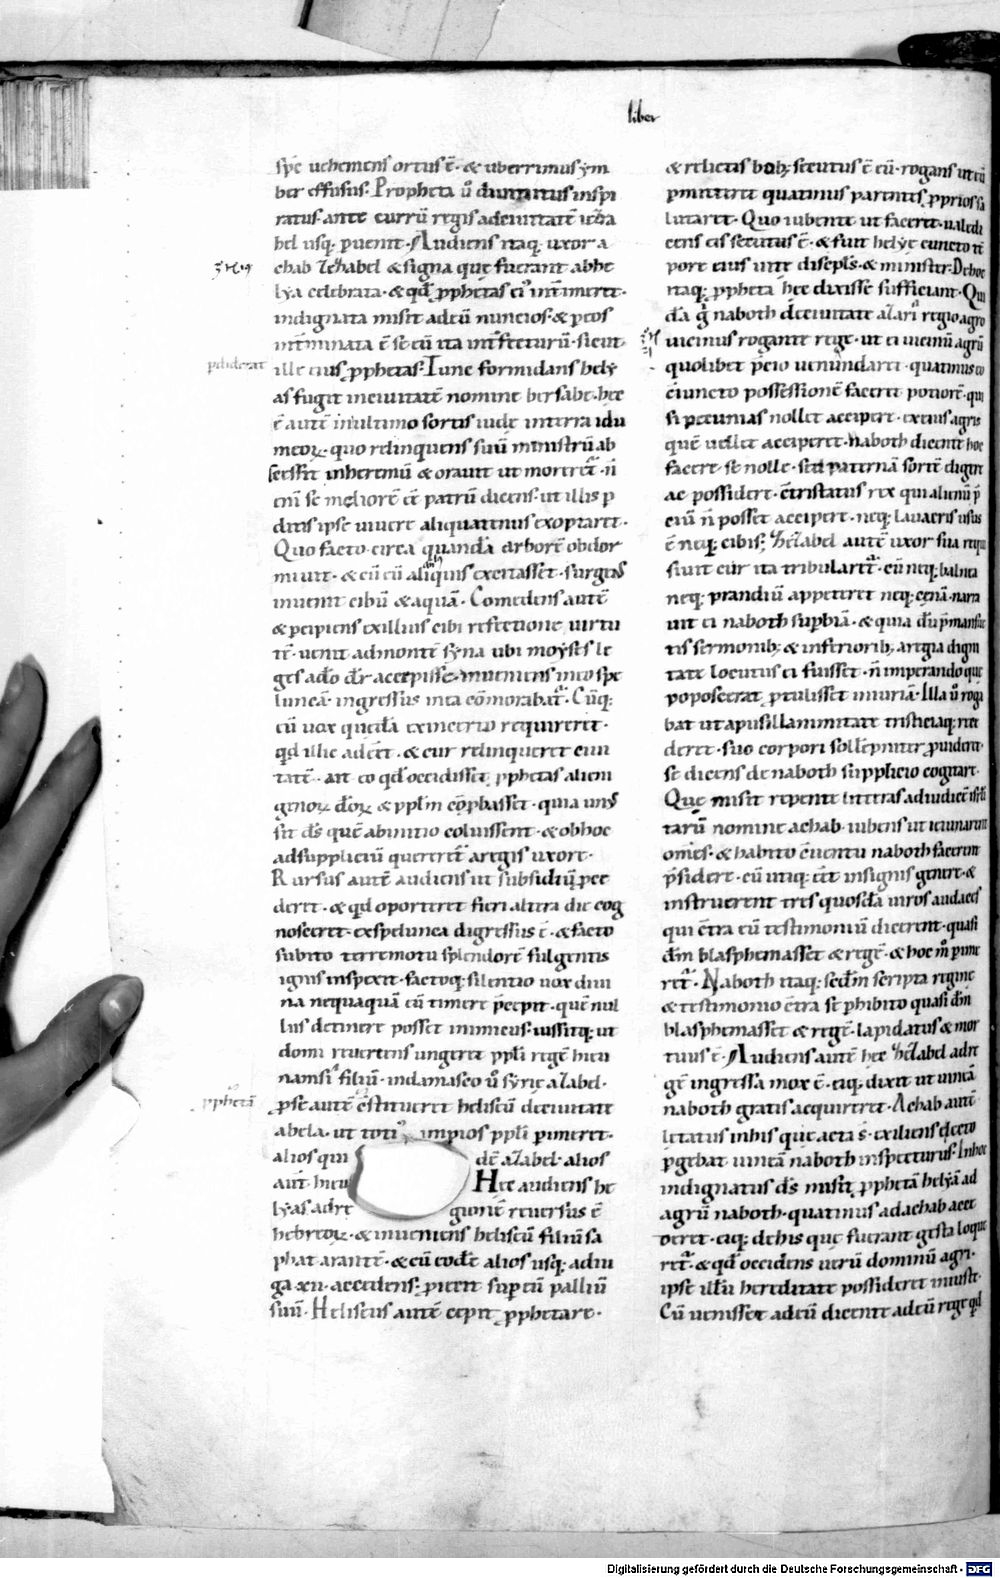 liber
spc̄ uehemens ortus ē· & uberrimus ym
ber effusus· Propheta ū diuinitus inspi
ratus· ante currū regis adciuitatē
hel usq; puenit· Audiens itaq; uxor a
chab & signa quę fuerant abhe
lya celebrata· & qd̄ ꝓphetas eiꝰ intimeret·
indignata misit adeū nuncios· & p eos
minata ē se eū ita sicut·
pdiderat
ille eius ꝓphetas· Tunc formidans hely
as fugit inciuitatē nomine bersabe· hec
ē autē inultimo sortis iudę interra idu
meoꝝ· quo relinquens suū ministrū ab
scessit inheremū & orauit ut moreret̄· n̄
eni se meliorē eē patrū dicens· ut illis p
ditis ipse uiuere aliquatinus exoptaret·
Quo facto circa quandā arborē obdor
miuit· & eū cū aliquis excitasset· surgens
inuenit cibū & aquā· Comedens autē
& pcipiens exillius cibi refectione uirtu
tē· uenit admontē syna ubi moyses le
ges a dō dr̄ accepisse· inueniens in eo spe
luncā· ingressus inea cōmorabat̄· Cūq;
eū uox quędā exincerto requireret·
qd illic adeēt· & cur relinqueret ciui
tatē· ait eo qd̄ occidisset ꝓphetas alieni
genoꝝ dōꝝ & ppl̄m cōpbasset· quia unꝰ
sit dꝰ quē abinitio coluissent· & obhoc
adsuppliciū quereret̄ aregis uxore·
Rursus autē audiens ut subsidiū pce
deret· & qd oporteret fieri altera die cog
nosceret· exspelunca digressus ē· & facto
subito terremotu splendorē fulgentis
ignis inspexit· factoq; silentio uox diui
na nequaquā eū timere p̄cepit· quē nul
lus detinere posset inimicus· iussitq; ut
domi reuertens ungeret ppl̄i regē hieu
namsi filiū· indamasco ū syrię azabel·
ꝓphetā
ꝓ se autē cōstitueret heliseū deciuitate
abela· ut totiꝰ impios ppl̄i pimeret·
alios qui dē azabel· alios
aut̄ hieu Hec audiens he
lyas adre gionē reuersus ē
hebreoꝝ· & inueniens heliseū filiū sa
phat arantē· & cū eodē alios usq; adiu
ga xii· accedens· piecit sup eū palliū
suū· Heliseus autē cepit ꝓphetare·
& relictis bobꝫ secutus ē eū· rogans ut eū
pmitteret quatinus parentes ꝓprios sa
lutaret· Quo iubente ut faceret· ualedi
cens eis secutus ē· & fuit helyę cuncto tē
pore eius uitę discipls· & minister· De hoc
itaq; ꝓpheta hec dixisse sufficiant· Qui
dā naboth deciuitate regio agro
uicinus rogante rege· ut ei uicinū agrū
quolibet p̄cio uenundaret· quatinus eo
ciuncto possessionē faceret potiorē· qui
si pecunias nollet accipere· exeius agris
quē uellet acciperet· naboth dicente hoc
facere se nolle· sed paternā sortē digere
ac possidere· cōtristatus rex qui alienū p̄
diū n̄ posset accipere· neq; lauacris usus
ē neq; cibis· autē uxor sua requi
siuit cur ita tribularet̄· cū neq; balnea
neq; prandiū appeteret neq; cenā· narra
uit ei naboth supbiā· & quia dū p̄mansue
tis sermonibꝫ & inferioribꝫ aregia digni
tate locutus ei fuisset· n̄ imperando quę
poposcerat ꝓtulisset iniuriā· Illa ū roga
bat ut apusillanimitate tristiciaq; rece
deret· suo corpori sollēpniter puideret·
se dicens de naboth supplicio cogitare·
Quę misit repente litteras ad iudicē isrl̄i
tarū nomine achab· iubens ut ieiunarent
omēs· & habito cōuentu naboth facerent
p̄sidere· cū utiq; eēt insignis genere· &
instruerent tres quosdā uiros audaces
qui cōtra eū testimoniū dicerent· quasi
dm̄ blasphemasset & regē· & hoc m̄ pime
ret̄· Naboth itaq; sedm̄ scripta reginę
& testimonio cōtra se phibito quasi dm̄
blasphemasset & regē· lapidatus & mor
tuus ē· Audiens autē hec adre
gē ingressa mox ē· eiq; dixit ut uineā
naboth gratis acquireret· Achab autē
letatus in his quę acta s̄· exiliens de eco
pgebat uineā naboth inspecturus· Inhoc
indignatus dꝰ misit ꝓphetā helyā ad
agrū naboth· quatinus ad achab acce
deret· eiq; dehis quę fuerant gesta loque
ret̄· & qd̄ occidens uerū dominū agri·
ipse illiꝰ hereditate possideret iniuste·
Cū uenisset adeū dicente adeū rege qd
Digitalisierung gefördert durch die Deutsche Forschungsgemeinschaft - DFG